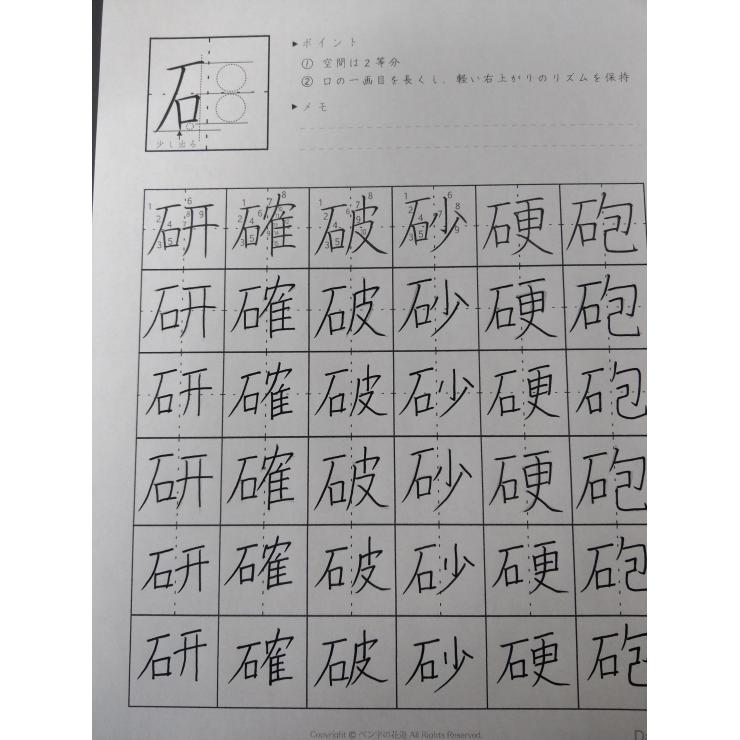 石
少し出る
▶ポイント
① 空間は2等分
② 口の一画目を長くし、軽い右上がりのリズムを保持
▶メモ
研 確 破 砂 硬 砲
研 確 破 砂 硬 砲
研 確 破 砂 硬 砲
研 確 破 砂 硬 砲
研 確 破 砂 硬 砲
研 確 破 砂 硬 砲
Copyright © ペン字の花道 All Rights Reserved.